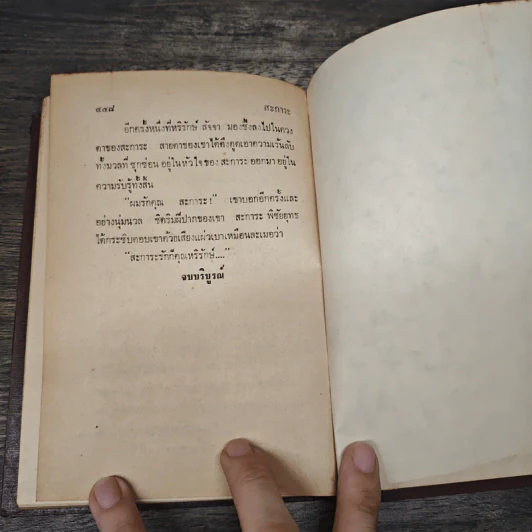 ๔๔๘ สะการะ
อีกครั้งหนึ่งที่หริรักษ์ ลัจจา มองซึ้งลงไปในดวง
ตาของสะการะ สายตาของเขาได้ดึงดูดเอาความเร้นลับ
ทั้งมวลที่ ซุกซ่อน อยู่ใน หัวใจ ของ สะการะ ออกมา อยู่ใน
ความรับรู้ทั้งสิ้น
"ผมรักคุณ สาย สะการะ!" เขาบอกอีกครั้งและ
อย่างนุ่มนวล ชิดริมฝีปากของเขา สะการะ พิชัยยุทธ
ได้กระซิบตอบเขาด้วยเสียงแผ่วเบาเหมือนละเมอว่า
"สะการะรักก็คุณหริรักษ์...."
จบบริบูรณ์